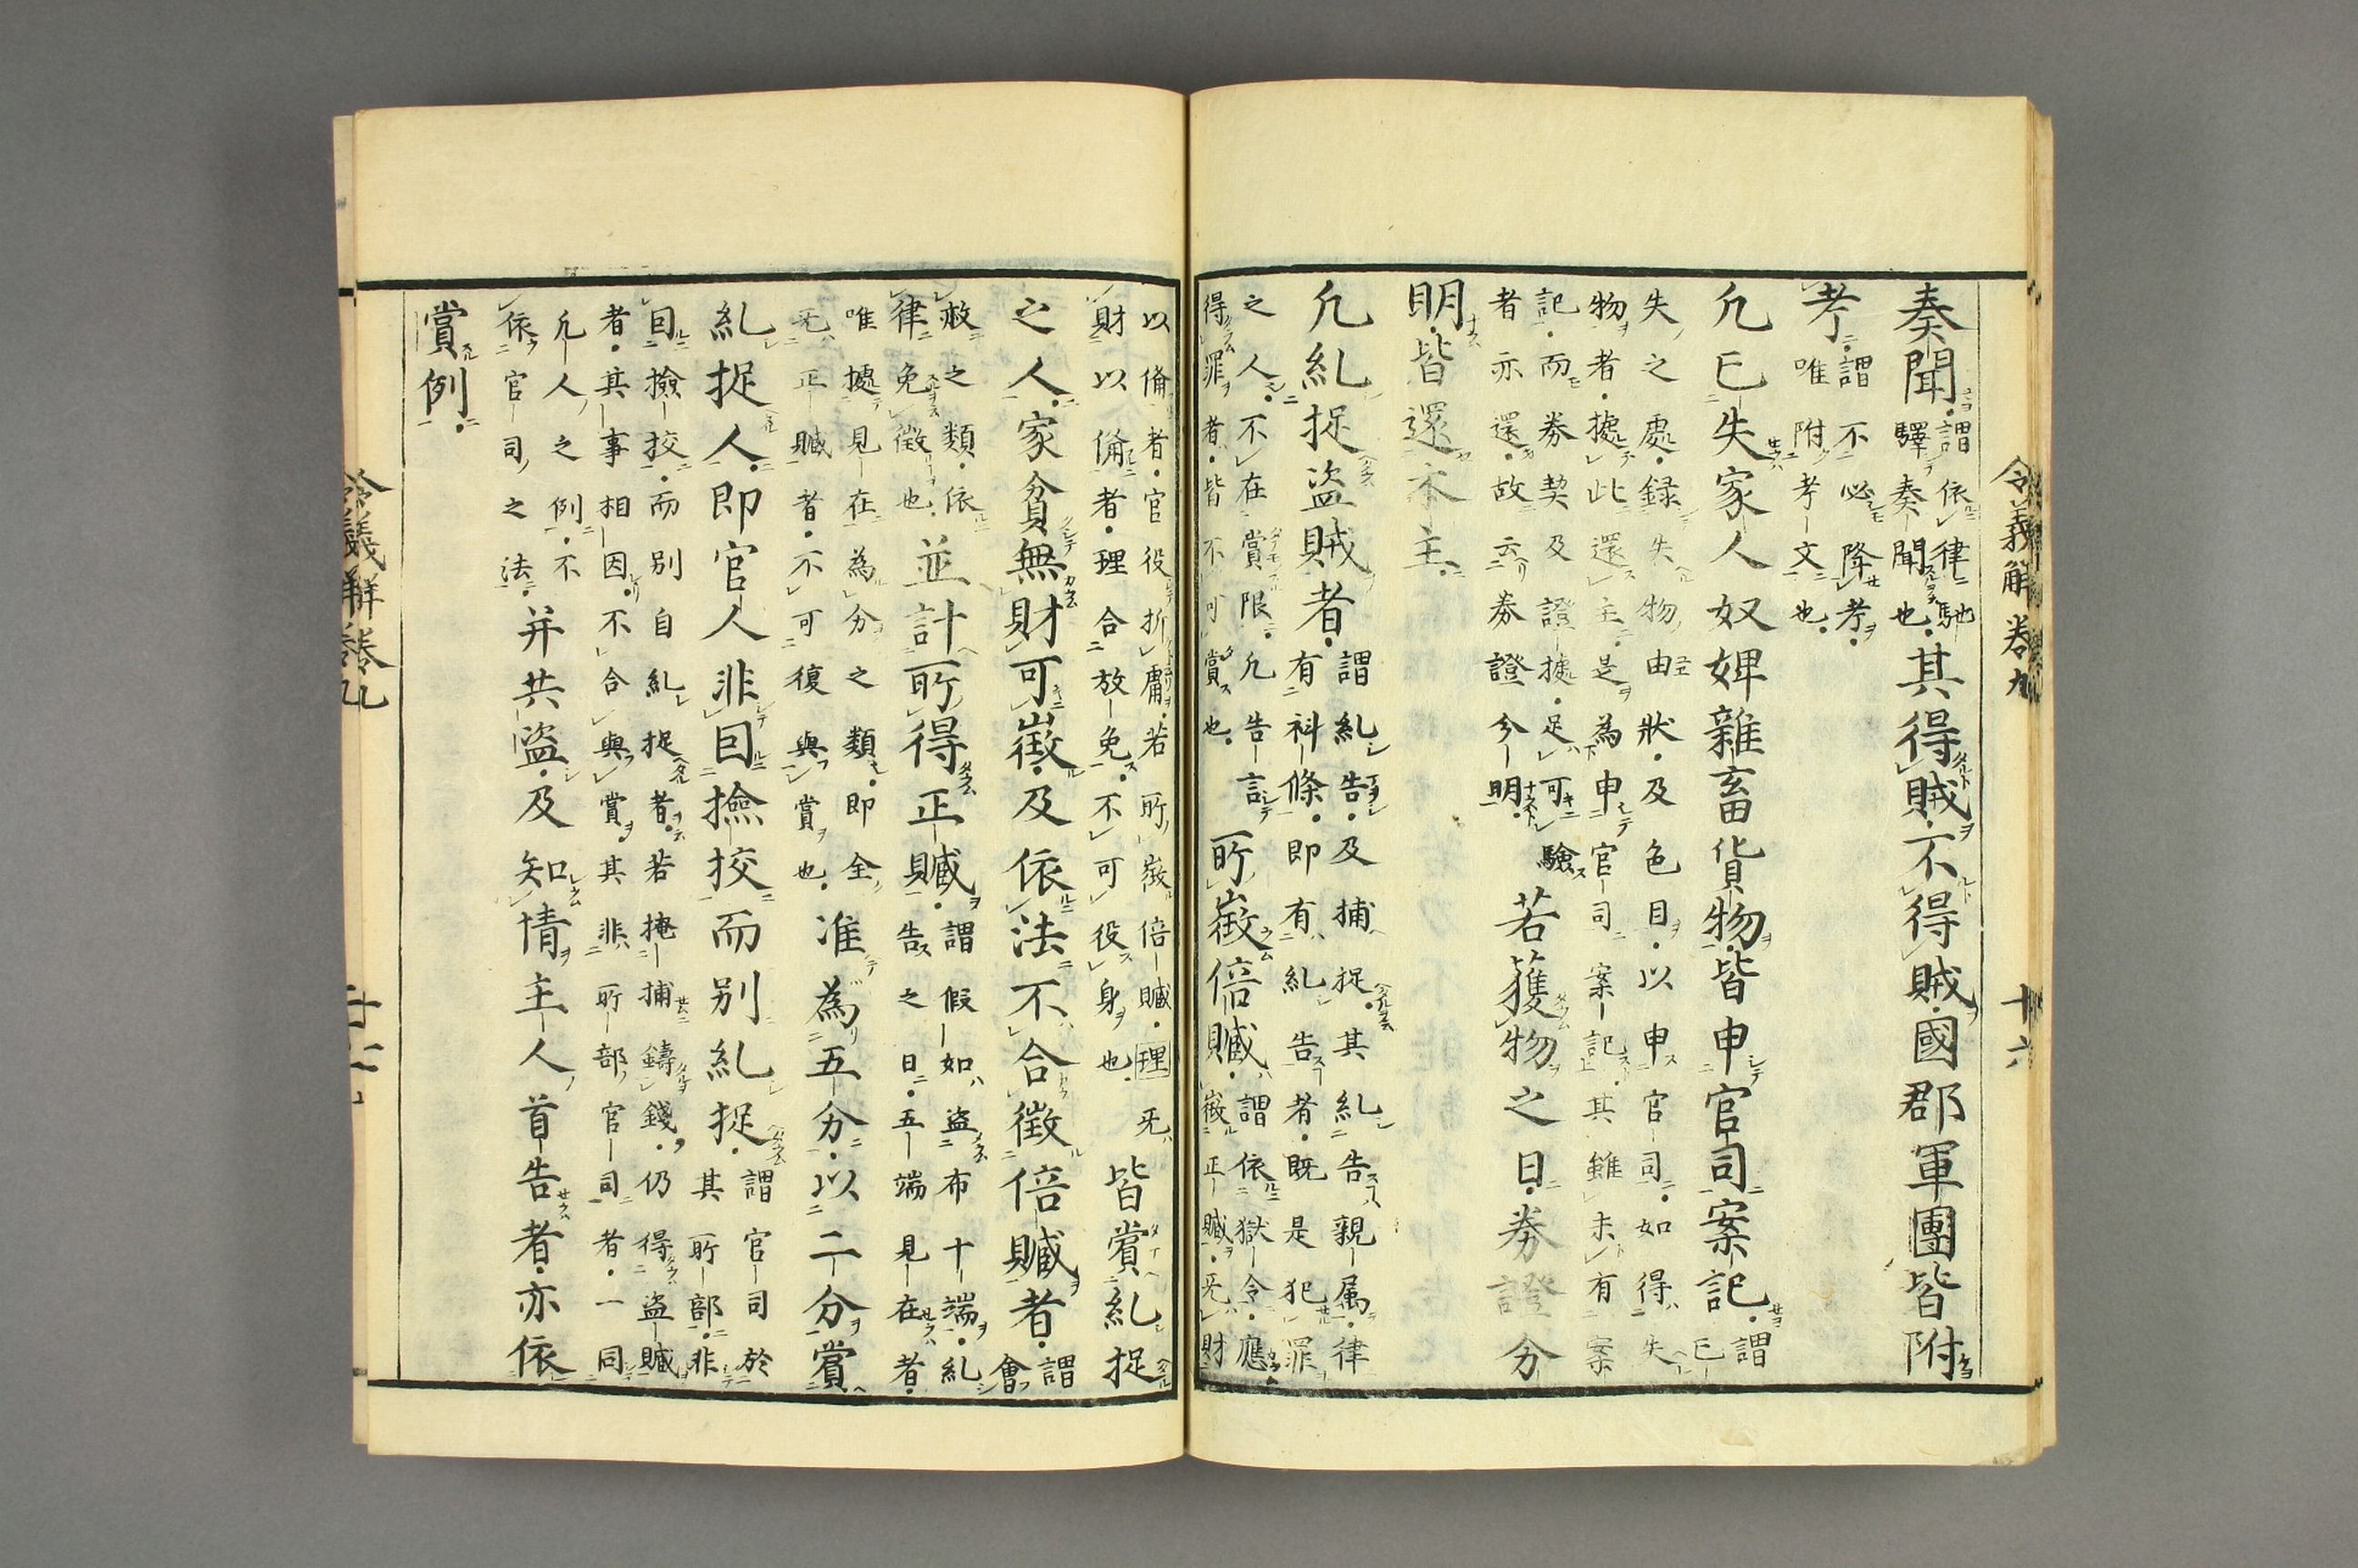 令義解卷九　十六
奏聞謂依律馳驛奏聞也其得賊不得賊國郡軍團皆附
考謂不必降考唯附考文也
凢已失家人奴婢雜畜貨物皆申官司案記謂已
失之處録失物由狀及色目以申官司如得失
物者據此還主是為申官司案記其雖未有案
記而券契及證據足可驗者亦還故云券證分明若獲物之日券證分
明皆還本主
凢糺捉盗賊者謂糺告及捕捉其糺告親属律有科條即有糺告者既是犯罪
之人不在賞限凢告言得罪者皆不可賞也所徴倍贓謂依獄令應徴正贓无財
以備者官役折庸若所徴倍贓理无財以備者理合放免不可役身也皆賞糺捉
之人家貧無財可徴及依法不合徴倍贓者謂會
赦之類依律免徴也並計所得正贓謂假如盗布十端糺告之日五端見在者
唯據見在為分之類即全无正贓者不可復與賞也准為五分以二分賞
糺捉人即官人非因撿挍而别糺捉謂官司於其所部非
因撿挍而别自糺捉者若掩捕鑄錢仍得盗贓
者其事相因不合與賞其非所部官司者一同
凢人之例不依官司之法并共盗及知情主人首告者亦依
賞例
令義解卷九